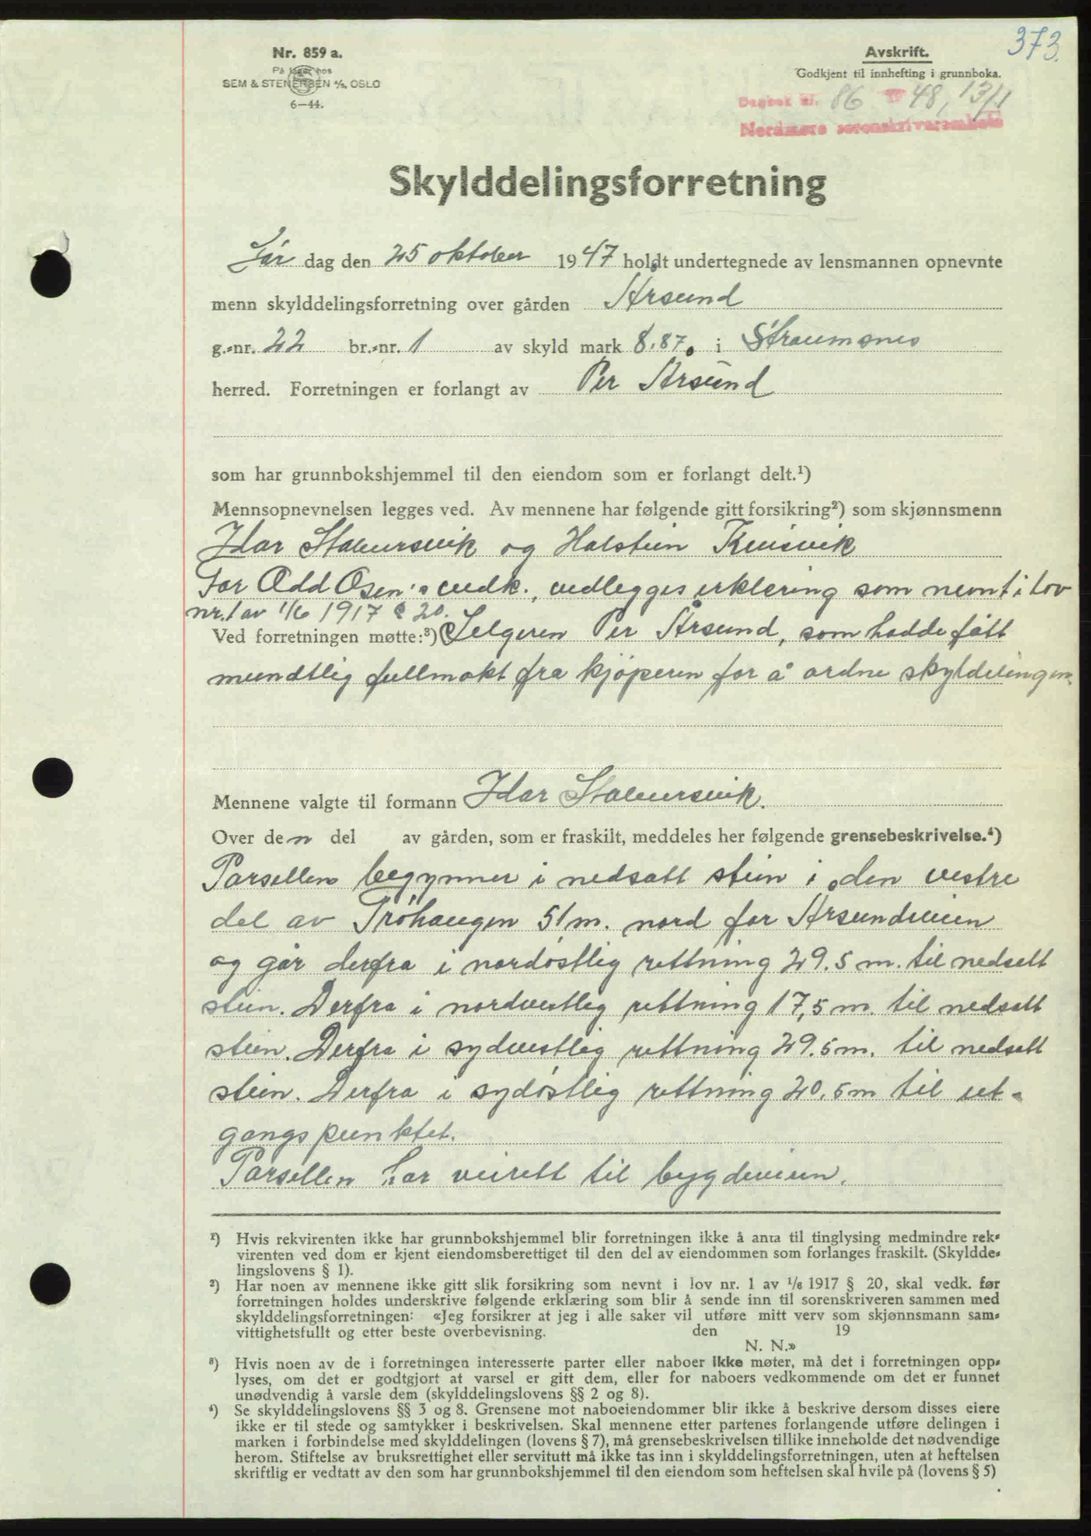 373.
Nr. 859 a.
På lager hos
SEM & STENERSEN A/S, OSLO
6—44.
Avskrift.
Godkjent til innhefting i grunnboka.
Dagbok nr. 86 19 48, 13/1
Nordmøre sorenskriverembete
Skylddelingsforretning
År dag den 25 oktober 1947 holdt undertegnede av lensmannen opnevnte
menn skylddelingsforretning over gården Årsund
g.-nr. 22 br.-nr. 1 av skyld mark 8.87. i Straumsnes
herred. Forretningen er forlangt av Per Årsund
som har grunnbokshjemmel til den eiendom som er forlangt delt.¹)
Mennsopnevnelsen legges ved. Av mennene har følgende gitt forsikring²) som skjønnsmenn
Idar Stabursvik og Halstein Kvisvik
For Odd Osen's vedk., vedlegges erklering som nevnt i lov
nr. 1 av 1/6 1917 § 20.
Ved forretningen møtte:³) Selgeren Per Årsund, som hadde fått
mundtlig fullmakt fra kjøperen for å ordne skyldelingen.
Mennene valgte til formann Idar Stabursvik.
Over den del av gården, som er fraskilt, meddeles her følgende grensebeskrivelse.⁴)
Parsellen begynner i nedsatt stein i den vestre
del av Trøhaugen 51 m. nord for Årsundveien
og går derfra i nordøstlig rettning 29.5 m. til nedsett
stein. Derfra i nordvestlig rettning 17,5 m. til nedsatt
stein. Derfra i sydvestlig rettning 29.5 m. til nedsatt
stein. Derfra i sydøstlig rettning 20.5 m til ut-
gangspunktet.
Parsellen har veirett til bygdeveien.
¹) Hvis rekvirenten ikke har grunnbokshjemmel blir forretningen ikke å anta til tinglysing medmindre rek-
virenten ved dom er kjent eiendomsberettiget til den del av eiendommen som forlanges fraskilt. (Skyldde-
lingslovens § 1).
²) Har noen av mennene ikke gitt slik forsikring som nevnt i lov nr. 1 av 1/6 1917 § 20, skal vedk. før
forretningen holdes underskrive følgende erklæring som blir å sende inn til sorenskriveren sammen med
skylddelingsforretningen: «Jeg forsikrer at jeg i alle saker vil utføre mitt verv som skjønnsmann sam-
vittighetsfullt og etter beste overbevisning. den 19
N. N.»
³) Hvis noen av de i forretningen interesserte parter eller naboer ikke møter, må det i forretningen opp-
lyses, om det er godtgjort at varsel er gitt dem, eller for naboers vedkommende om det er funnet
unødvendig å varsle dem (skylddelingslovens §§ 2 og 8).
⁴) Se skylddelingslovens §§ 3 og 8. Grensene mot naboeiendommer blir ikke å beskrive dersom disses eiere
ikke er til stede og samtykker i beskrivelsen. Skal mennene etter partenes forlangende utføre delingen i
marken i forbindelse med skylddelingen (lovens § 7), må grensebeskrivelsen tillike inneholde det nødvendige
herom. Stiftelse av bruksrettighet eller servitutt må ikke tas inn i skylddelingsforretningen, uten at heftelsen
skriftlig er vedtatt av den som har grunnbokshjemmel til den eiendom som heftelsen skal hvile på (lovens § 5)